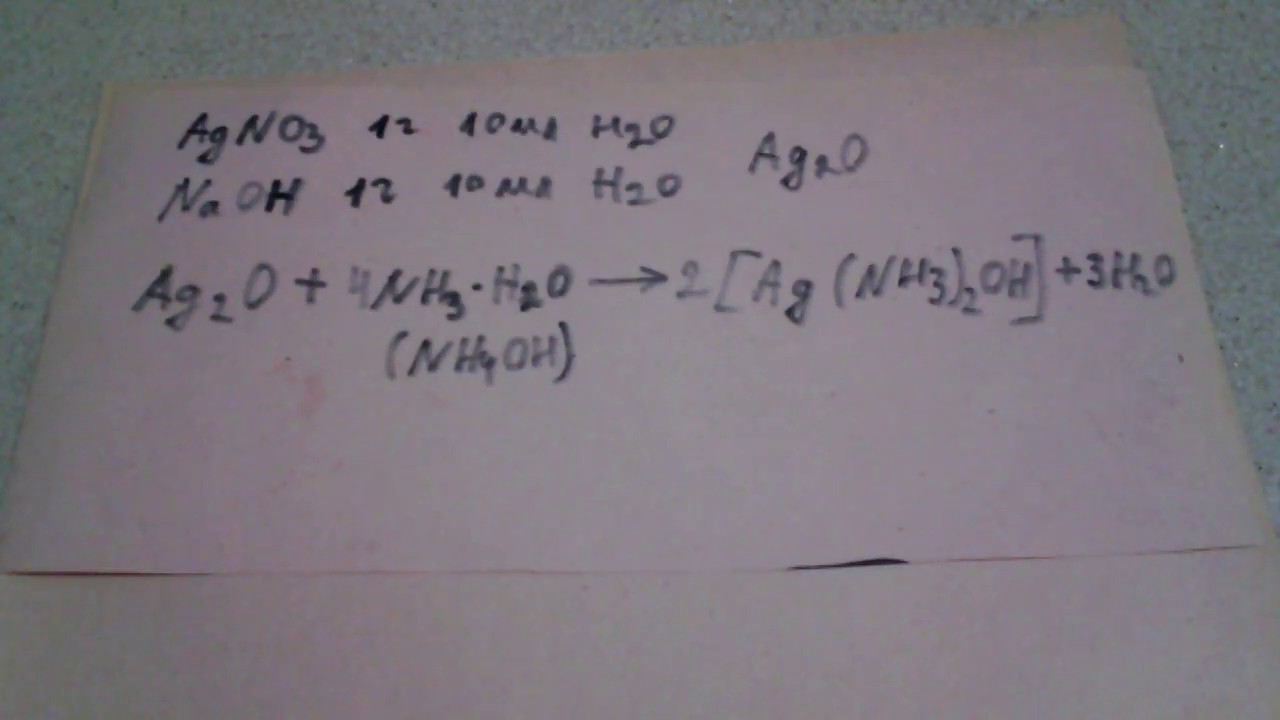 AgNO3 1г 10мл H2O
NaOH 1г 10мл H2O
Ag2O
Ag2O + 4NH3·H2O → 2[Ag(NH3)2OH] + 3H2O
(NH4OH)